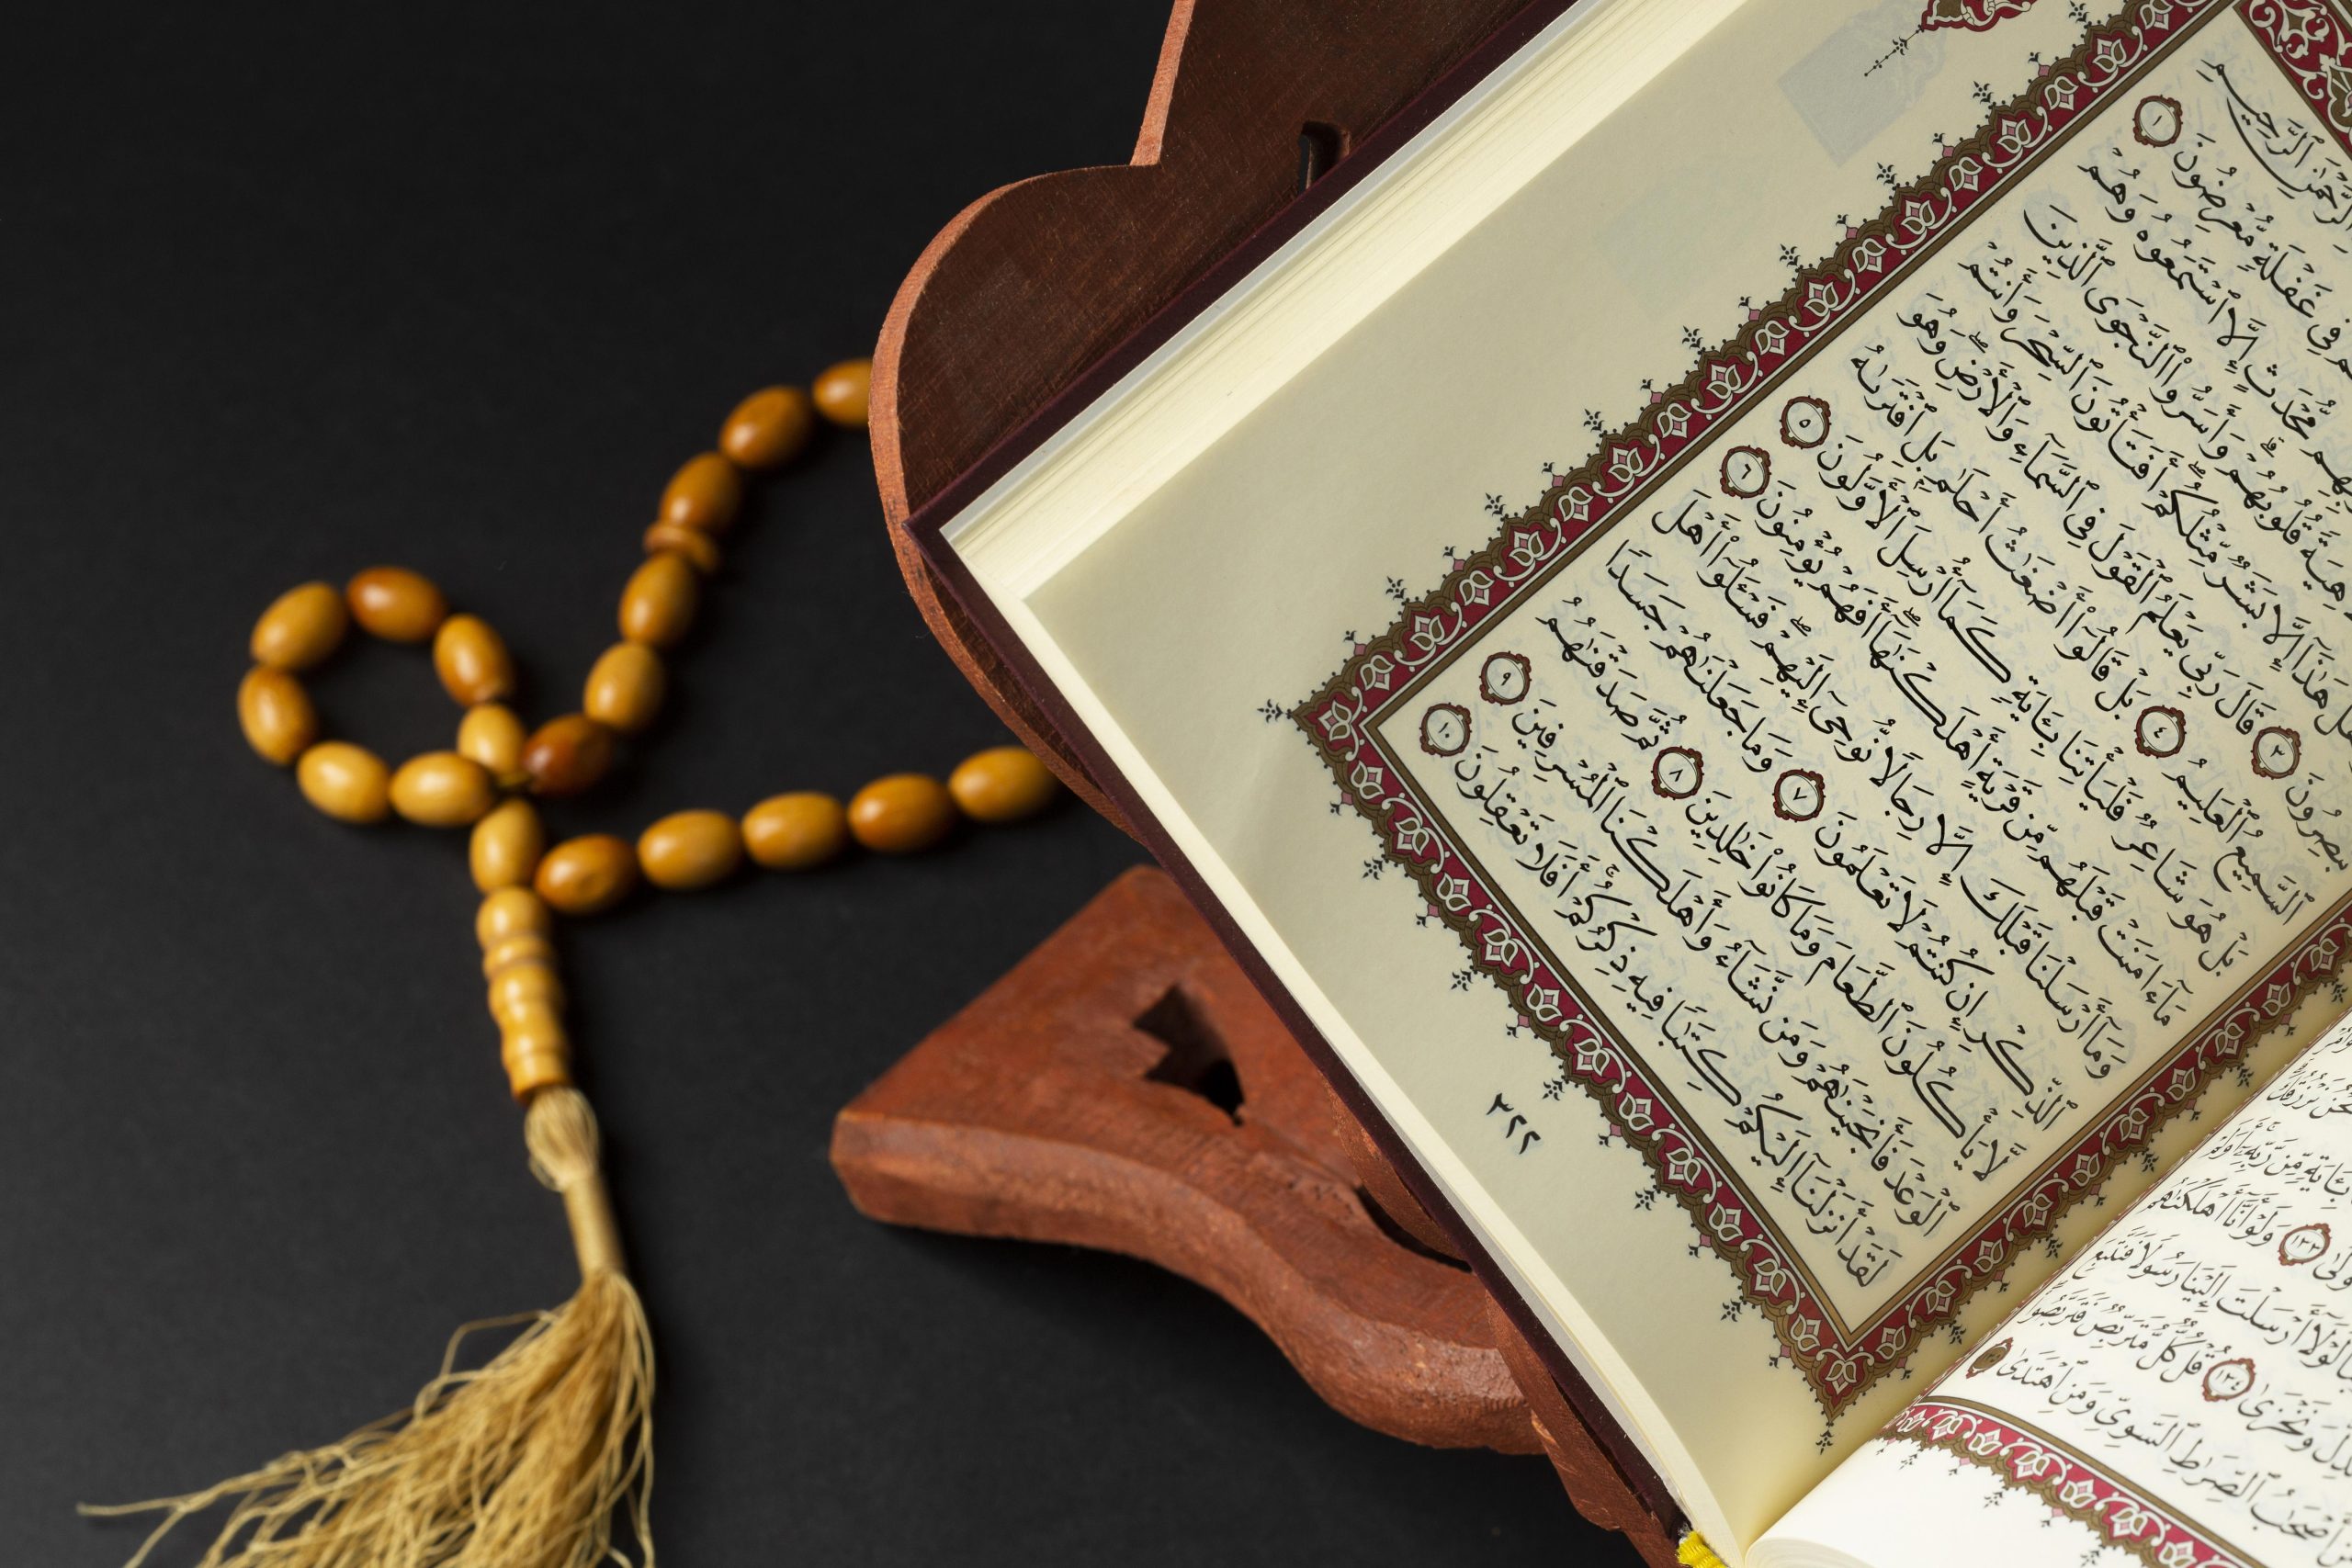 الرَّحْمَٰنِ الرَّحِيمِ
فِى غَفْلَةٍ مُّعْرِضُونَ ١
مُّحْدَثٍ إِلَّا ٱسْتَمَعُوهُ وَهُمْ
قُلُوبُهُمْ ۗ وَأَسَرُّوا۟ ٱلنَّجْوَى ٱلَّذِينَ
هَلْ هَٰذَآ إِلَّا بَشَرٌ مِّثْلُكُمْ ۖ أَفَتَأْتُونَ ٱلسِّحْرَ وَأَنتُمْ
تُبْصِرُونَ ٣ قَالَ رَبِّى يَعْلَمُ ٱلْقَوْلَ فِى ٱلسَّمَآءِ وَٱلْأَرْضِ ۖ وَهُوَ
ٱلسَّمِيعُ ٱلْعَلِيمُ ٤ بَلْ قَالُوٓا۟ أَضْغَٰثُ أَحْلَٰمٍۭ بَلِ ٱفْتَرَىٰهُ
بَلْ هُوَ شَاعِرٌ فَلْيَأْتِنَا بِـَٔايَةٍ كَمَآ أُرْسِلَ ٱلْأَوَّلُونَ ٥
مَآ ءَامَنَتْ قَبْلَهُم مِّن قَرْيَةٍ أَهْلَكْنَٰهَآ ۖ أَفَهُمْ يُؤْمِنُونَ ٦
وَمَآ أَرْسَلْنَا قَبْلَكَ إِلَّا رِجَالًا نُّوحِىٓ إِلَيْهِمْ ۖ فَسْـَٔلُوٓا۟ أَهْلَ
ٱلذِّكْرِ إِن كُنتُمْ لَا تَعْلَمُونَ ٧ وَمَا جَعَلْنَٰهُمْ جَسَدًا
لَّا يَأْكُلُونَ ٱلطَّعَامَ وَمَا كَانُوا۟ خَٰلِدِينَ ٨ ثُمَّ صَدَقْنَٰهُمُ
ٱلْوَعْدَ فَأَنجَيْنَٰهُمْ وَمَن نَّشَآءُ وَأَهْلَكْنَا ٱلْمُسْرِفِينَ ٩
لَقَدْ أَنزَلْنَآ إِلَيْكُمْ كِتَٰبًا فِيهِ ذِكْرُكُمْ ۖ أَفَلَا تَعْقِلُونَ ١٠
٣٢٢
نَّحْنُ نَرْزُقُكَ
بِـَٔايَةٍ مِّن رَّبِّهِۦٓ ۚ أَوَلَمْ
١٣٣ وَلَوْ أَنَّآ أَهْلَكْنَٰهُم
لَوْلَآ أَرْسَلْتَ إِلَيْنَا رَسُولًا فَنَتَّبِعَ
وَنَخْزَىٰ ١٣٤ قُلْ كُلٌّ مُّتَرَبِّصٌ فَتَرَبَّصُوا۟
أَصْحَٰبُ ٱلصِّرَٰطِ ٱلسَّوِىِّ وَمَنِ ٱهْتَدَىٰ